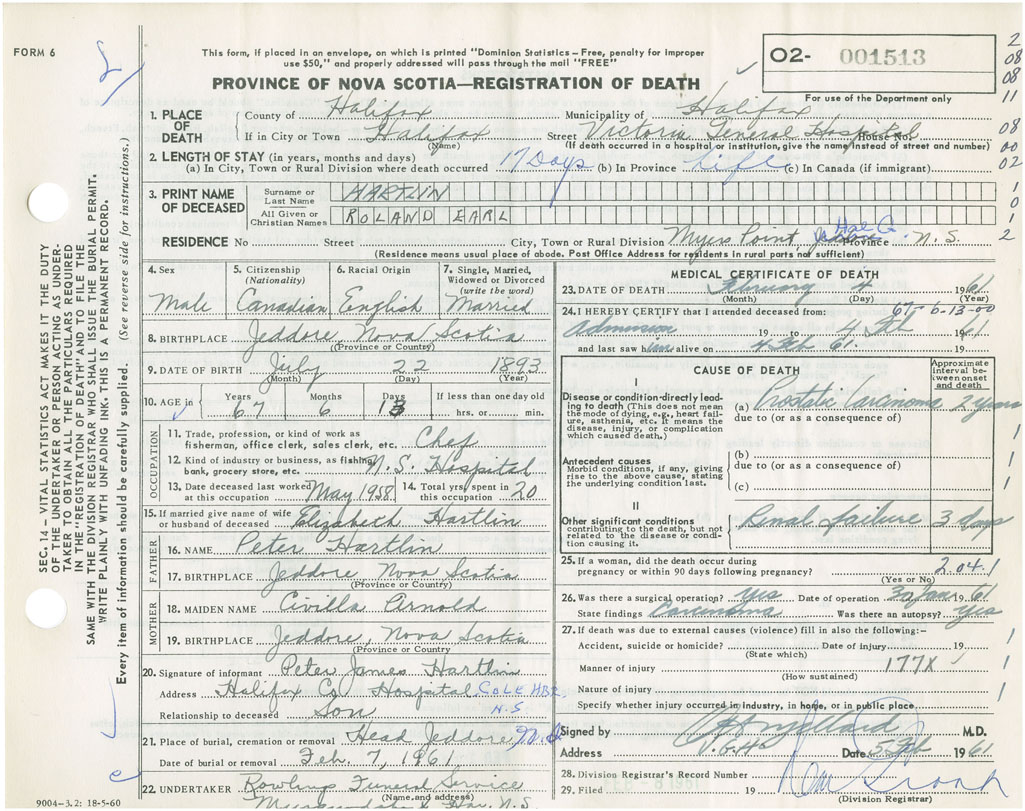 FORM 6
This form, if placed in an envelope, on which is printed "Dominion Statistics - Free, penalty for improper
use $50," and properly addressed will pass through the mail "FREE"
O2- 001513
For use of the Department only
PROVINCE OF NOVA SCOTIA—REGISTRATION OF DEATH
1. PLACE OF DEATH
County of Halifax Municipality of Halifax
If in City or Town Halifax Street Victoria General Hospital House No.
(Name) (If death occurred in a hospital or institution, give the name instead of street and number)
2. LENGTH OF STAY (in years, months and days)
(a) In City, Town or Rural Division where death occurred 17 Days (b) In Province Life (c) In Canada (if immigrant)
3. PRINT NAME OF DECEASED
Surname or Last Name HARTLIN
All Given or Christian Names ROLAND EARL
RESIDENCE No Street City, Town or Rural Division Myers Point, Hal Co. Province N. S.
(Residence means usual place of abode. Post Office Address for residents in rural parts not sufficient)
4. Sex Male
5. Citizenship (Nationality) Canadian
6. Racial Origin English
7. Single, Married, Widowed or Divorced (write the word) Married
8. BIRTHPLACE Jeddore, Nova Scotia
(Province or Country)
9. DATE OF BIRTH July 22 1893
(Month) (Day) (Year)
10. AGE in Years 67 Months 6 Days 13 If less than one day old hrs. or min.
OCCUPATION
11. Trade, profession, or kind of work as fisherman, office clerk, sales clerk, etc. Chef
12. Kind of industry or business, as fishing, bank, grocery store, etc. N.S. Hospital
13. Date deceased last worked at this occupation May 1958
14. Total yrs. spent in this occupation 20
15. If married give name of wife or husband of deceased Elizabeth Hartlin
FATHER
16. NAME Peter Hartlin
17. BIRTHPLACE Jeddore Nova Scotia
(Province or Country)
MOTHER
18. MAIDEN NAME Civilla Arnold
19. BIRTHPLACE Jeddore, Nova Scotia
(Province or Country)
20. Signature of informant Peter James Hartlin
Address Halifax Co Hospital COLE HBR. N.S
Relationship to deceased Son
21. Place of burial, cremation or removal Head Jeddore, N.S
Date of burial or removal Feb. 7, 1961
22. UNDERTAKER Rowlings Funeral Service
(Name, and address)
Musquodoboit Har. N.S.
MEDICAL CERTIFICATE OF DEATH
23. DATE OF DEATH February 4 1961
(Month) (Day) (Year)
24. I HEREBY CERTIFY that I attended deceased from: 67 6-13-00
Admission 19 to 4 Feb 1961
and last saw him alive on 4 Feb 61. 19
CAUSE OF DEATH
Approximate interval between onset and death
I
Disease or condition directly leading to death (This does not mean the mode of dying, e.g., heart failure, asthenia, etc. It means the disease, injury, or complication which caused death.)
(a) Prostatic Carcinoma 2 years
due to (or as a consequence of)
Antecedent causes
Morbid conditions, if any, giving rise to the above cause, stating the underlying condition last.
(b)
due to (or as a consequence of)
(c)
II
Other significant conditions contributing to the death, but not related to the disease or condition causing it.
Renal failure 3 days
25. If a woman, did the death occur during pregnancy or within 90 days following pregnancy? 2 04.1
(Yes or No)
26. Was there a surgical operation? yes Date of operation Jan 1961
State findings Carcinoma Was there an autopsy? yes
27. If death was due to external causes (violence) fill in also the following:-
Accident, suicide or homicide? Date of injury 19
(State which)
Manner of injury 177X
(How sustained)
Nature of injury
Specify whether injury occurred in industry, in home, or in public place.
Signed by M.D.
Address V.G.H. Date 5 Feb 1961
28. Division Registrar's Record Number
29. Filed 19
(Division Registrar)
SEC. 14 - VITAL STATISTICS ACT MAKES IT THE DUTY
OF THE UNDERTAKER OR PERSON ACTING AS UNDER-
TAKER TO OBTAIN ALL THE PARTICULARS REQUIRED
IN THE "REGISTRATION OF DEATH" AND TO FILE THE
SAME WITH THE DIVISION REGISTRAR WHO SHALL ISSUE THE BURIAL PERMIT.
WRITE PLAINLY WITH UNFADING INK. THIS IS A PERMANENT RECORD.
Every item of information should be carefully supplied. (See reverse side for instructions.)
2
08
08
11
08
00
02
1
0
1
2
9004-3.2: 18-5-60